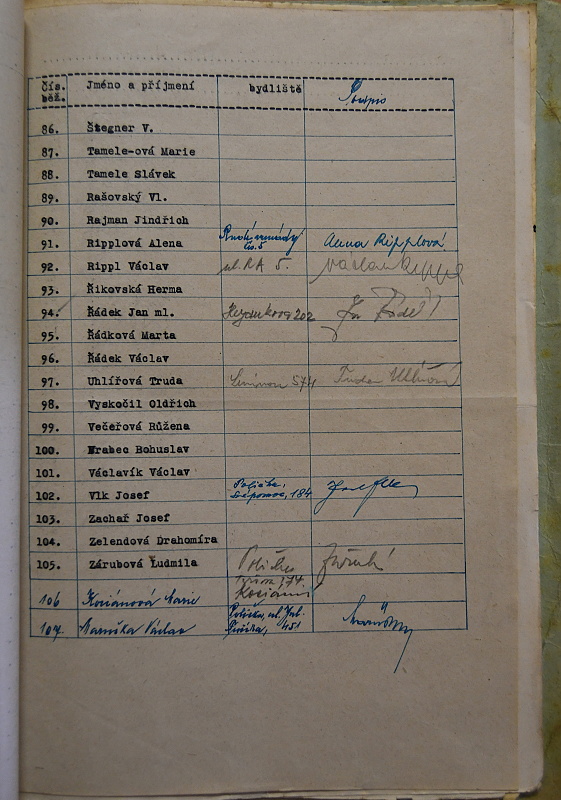 čís. Jméno a příjmení bydliště Podpis
běž.
86. Štegner V.
87. Tamele-ová Marie
88. Tamele Slávek
89. Rašovský Vl.
90. Rajman Jindřich
91. Ripplová Alena Rudé armády čs. 5 Anna Ripplová
92. Rippl Václav ul. RA 5. Václav Rippl
93. Řikovská Herma
94. Řádek Jan ml. 202
95. Řádková Marta
96. Řádek Václav
97. Uhlířová Truda 574 Truda Uhlířová
98. Vyskočil Oldřich
99. Večeřová Růžena
100. Hrabec Bohuslav
101. Václavík Václav
102. Vlk Josef Polička, 184
103. Zachař Josef
104. Zelendová Drahomíra
105. Zárubová Ludmila Polička
106 Marie
107. Václav Polička, ul. 451